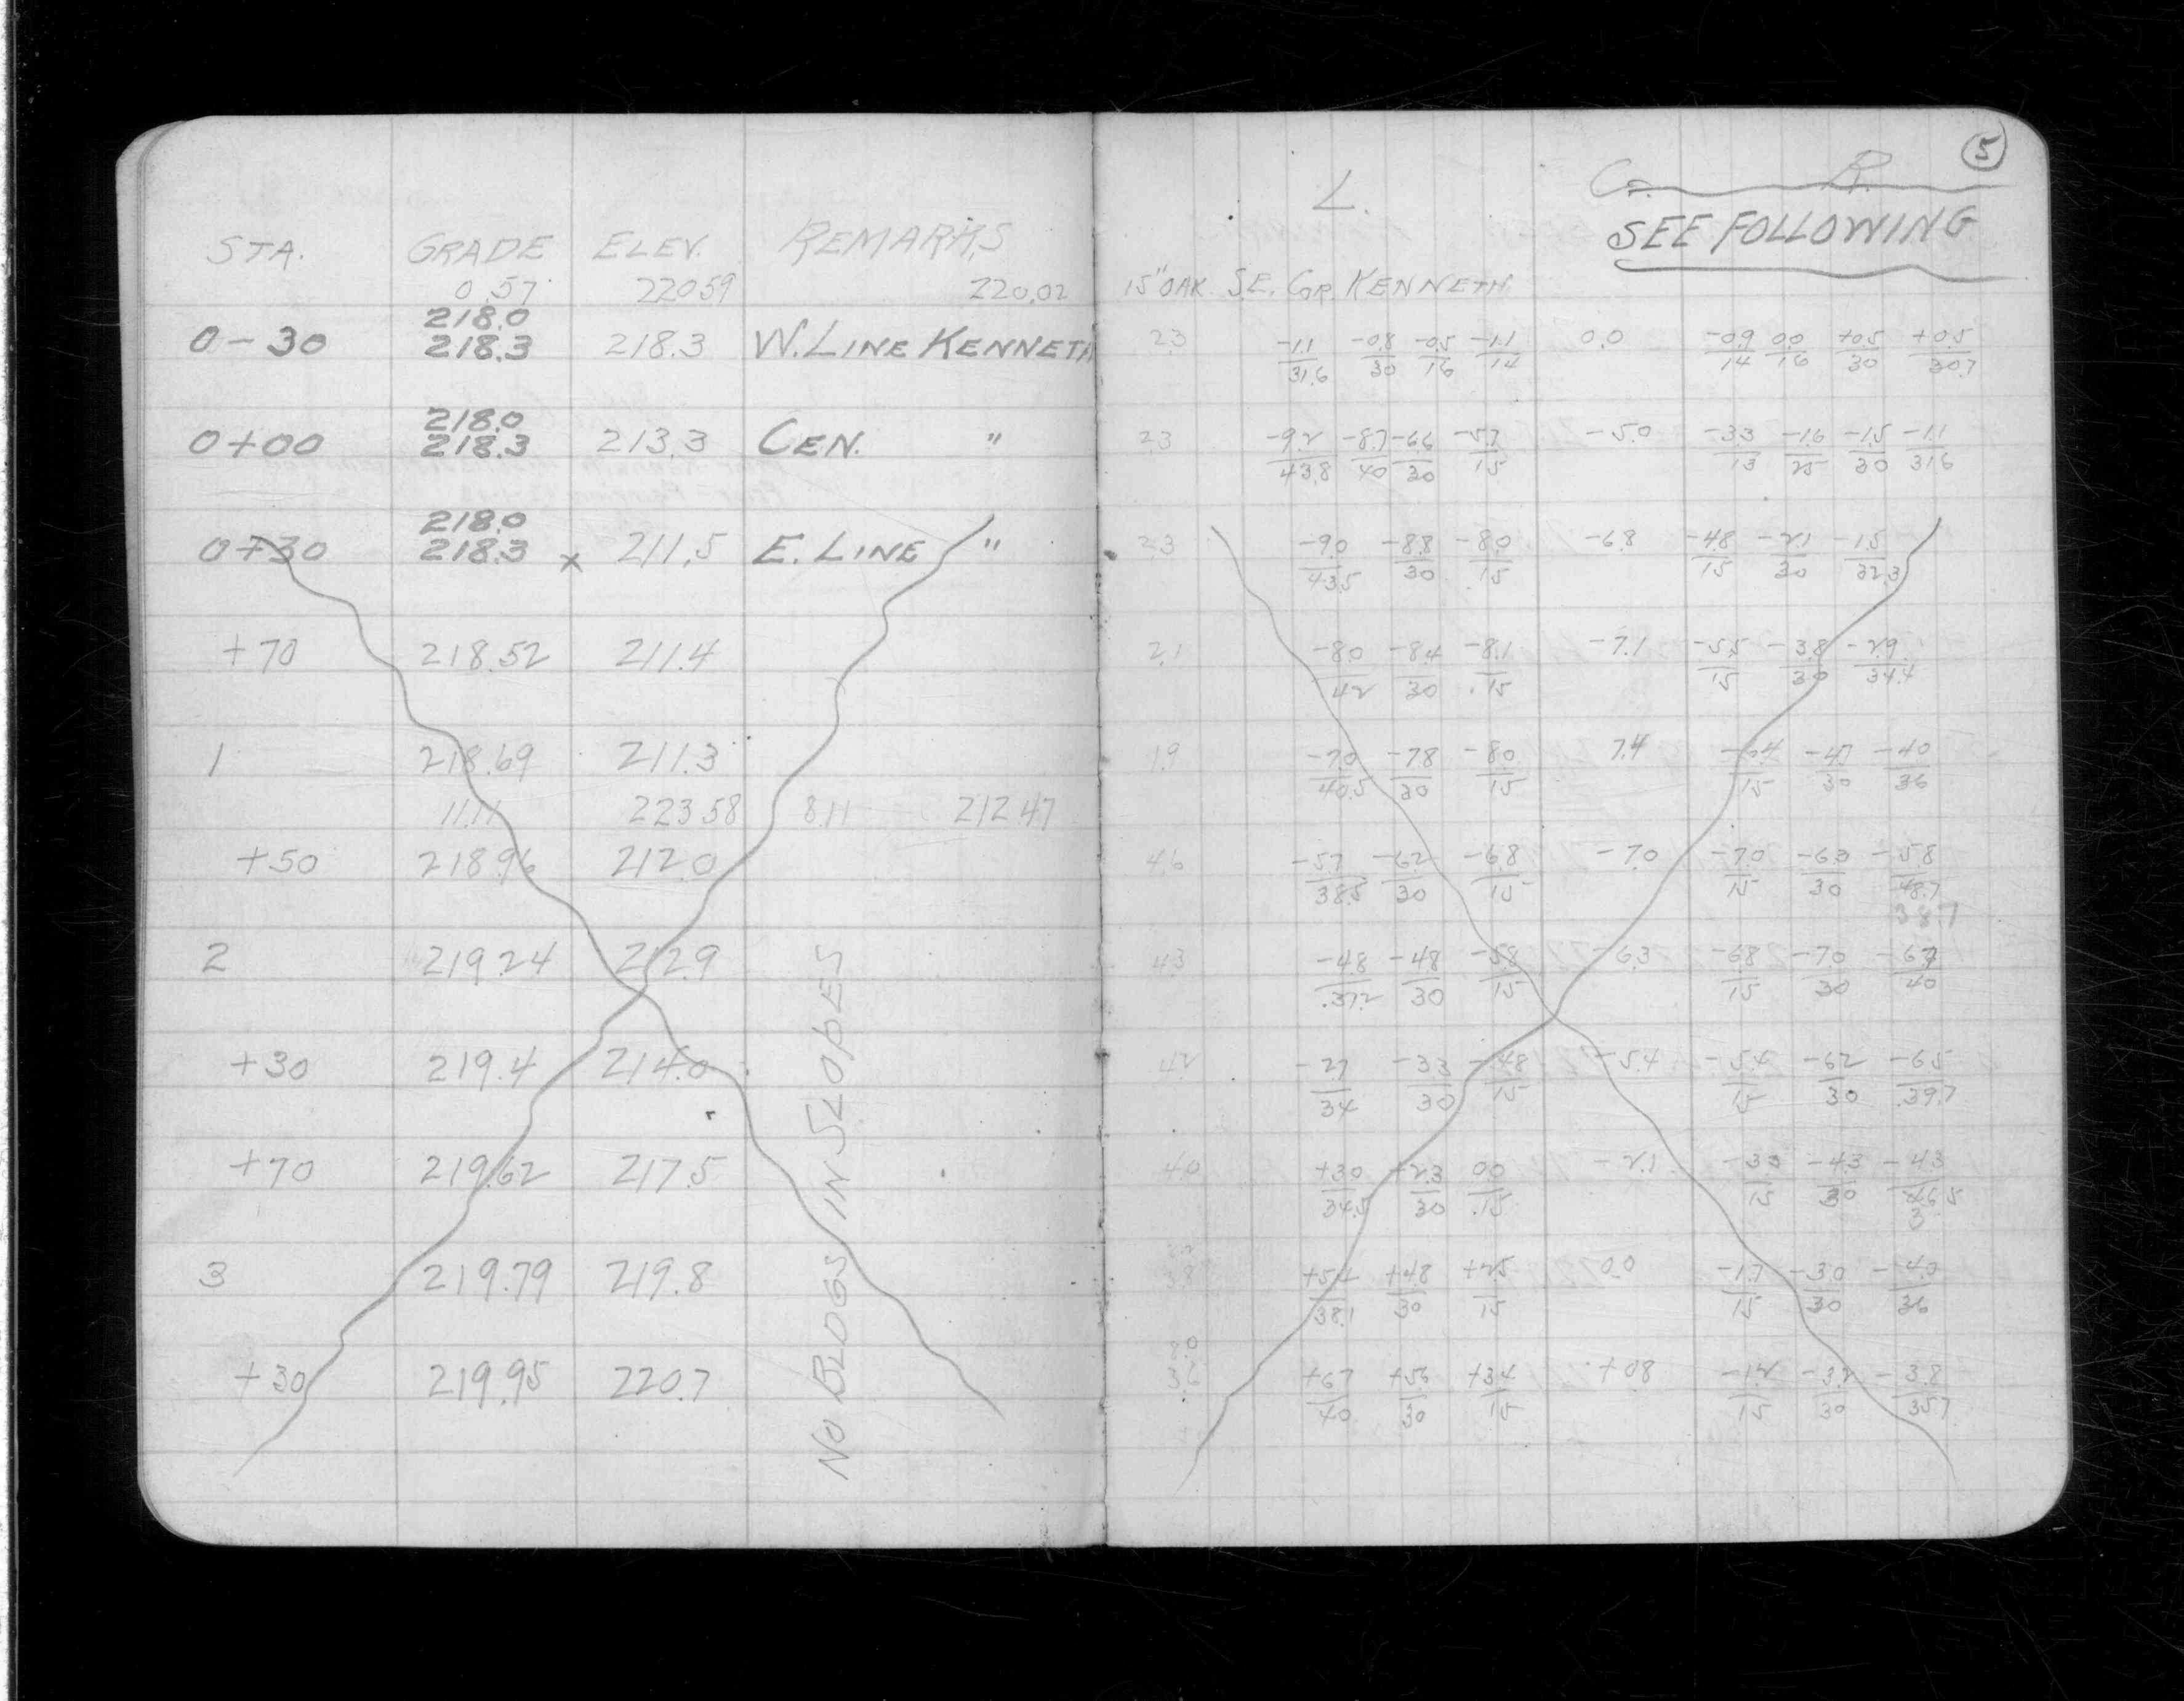 5
L. C. R.
SEE FOLLOWING
STA. GRADE ELEV. REMARKS
0.57 220.59 220.02 15" OAK S.E. Cr. KENNETH
218.0
0-30 218.3 218.3 W. LINE KENNETH 2.3 -1.1/31.6 -0.8/30 -0.5/16 -1.1/14 0.0 -0.9/14 0.0/16 +0.5/30 +0.5/30.7
218.0
0+00 218.3 213.3 CEN. " 2.3 -9.2/43.8 -8.7/40 -6.6/30 -5.7/15 -5.0 -3.3/13 -1.6/25 -1.5/30 -1.1/31.6
218.0
0+30 218.3 x 211.5 E. LINE " 2.3 -9.0/43.5 -8.8/30 -8.0/15 -6.8 -4.8/15 -2.1/30 -1.5/32.3
+70 218.52 211.4 2.1 -8.0/42 -8.4/30 -8.1/15 -7.1 -5.5/15 -3.8/30 -2.9/34.4
1 218.69 211.3 1.9 -7.0/40.5 -7.8/30 -8.0/15 7.4 -6.4/15 -4.7/30 -4.0/36
11.11 223.58 8.11 212.47
+50 218.96 212.0 4.6 -5.7/38.5 -6.2/30 -6.8/15 -7.0 -7.0/15 -6.3/30 -5.8/48.7
38.7
2 219.24 212.9 4.3 -4.8/37.2 -4.8/30 -5.8/15 -6.3 -6.8/15 -7.0/30 -6.7/40
+30 219.4 214.0 4.2 -2.7/34 -3.3/30 -4.8/15 -5.4 -5.4/15 -6.2/30 -6.5/39.7
+70 219.62 217.5 4.0 +3.0/34.5 +2.3/30 0.0/15 -2.1 -3.3/15 -4.3/30 -4.3/36.5
3 219.79 219.8 3.8 +5.4/38.1 +4.8/30 +2.5/15 0.0 -1.7/15 -3.0/30 -4.0/36
+30 219.95 220.7 3.6 +6.7/40 +5.6/30 +3.4/15 +0.8 -1.2/15 -3.2/30 -3.8/35.7
NO BLDGS IN SLOPES